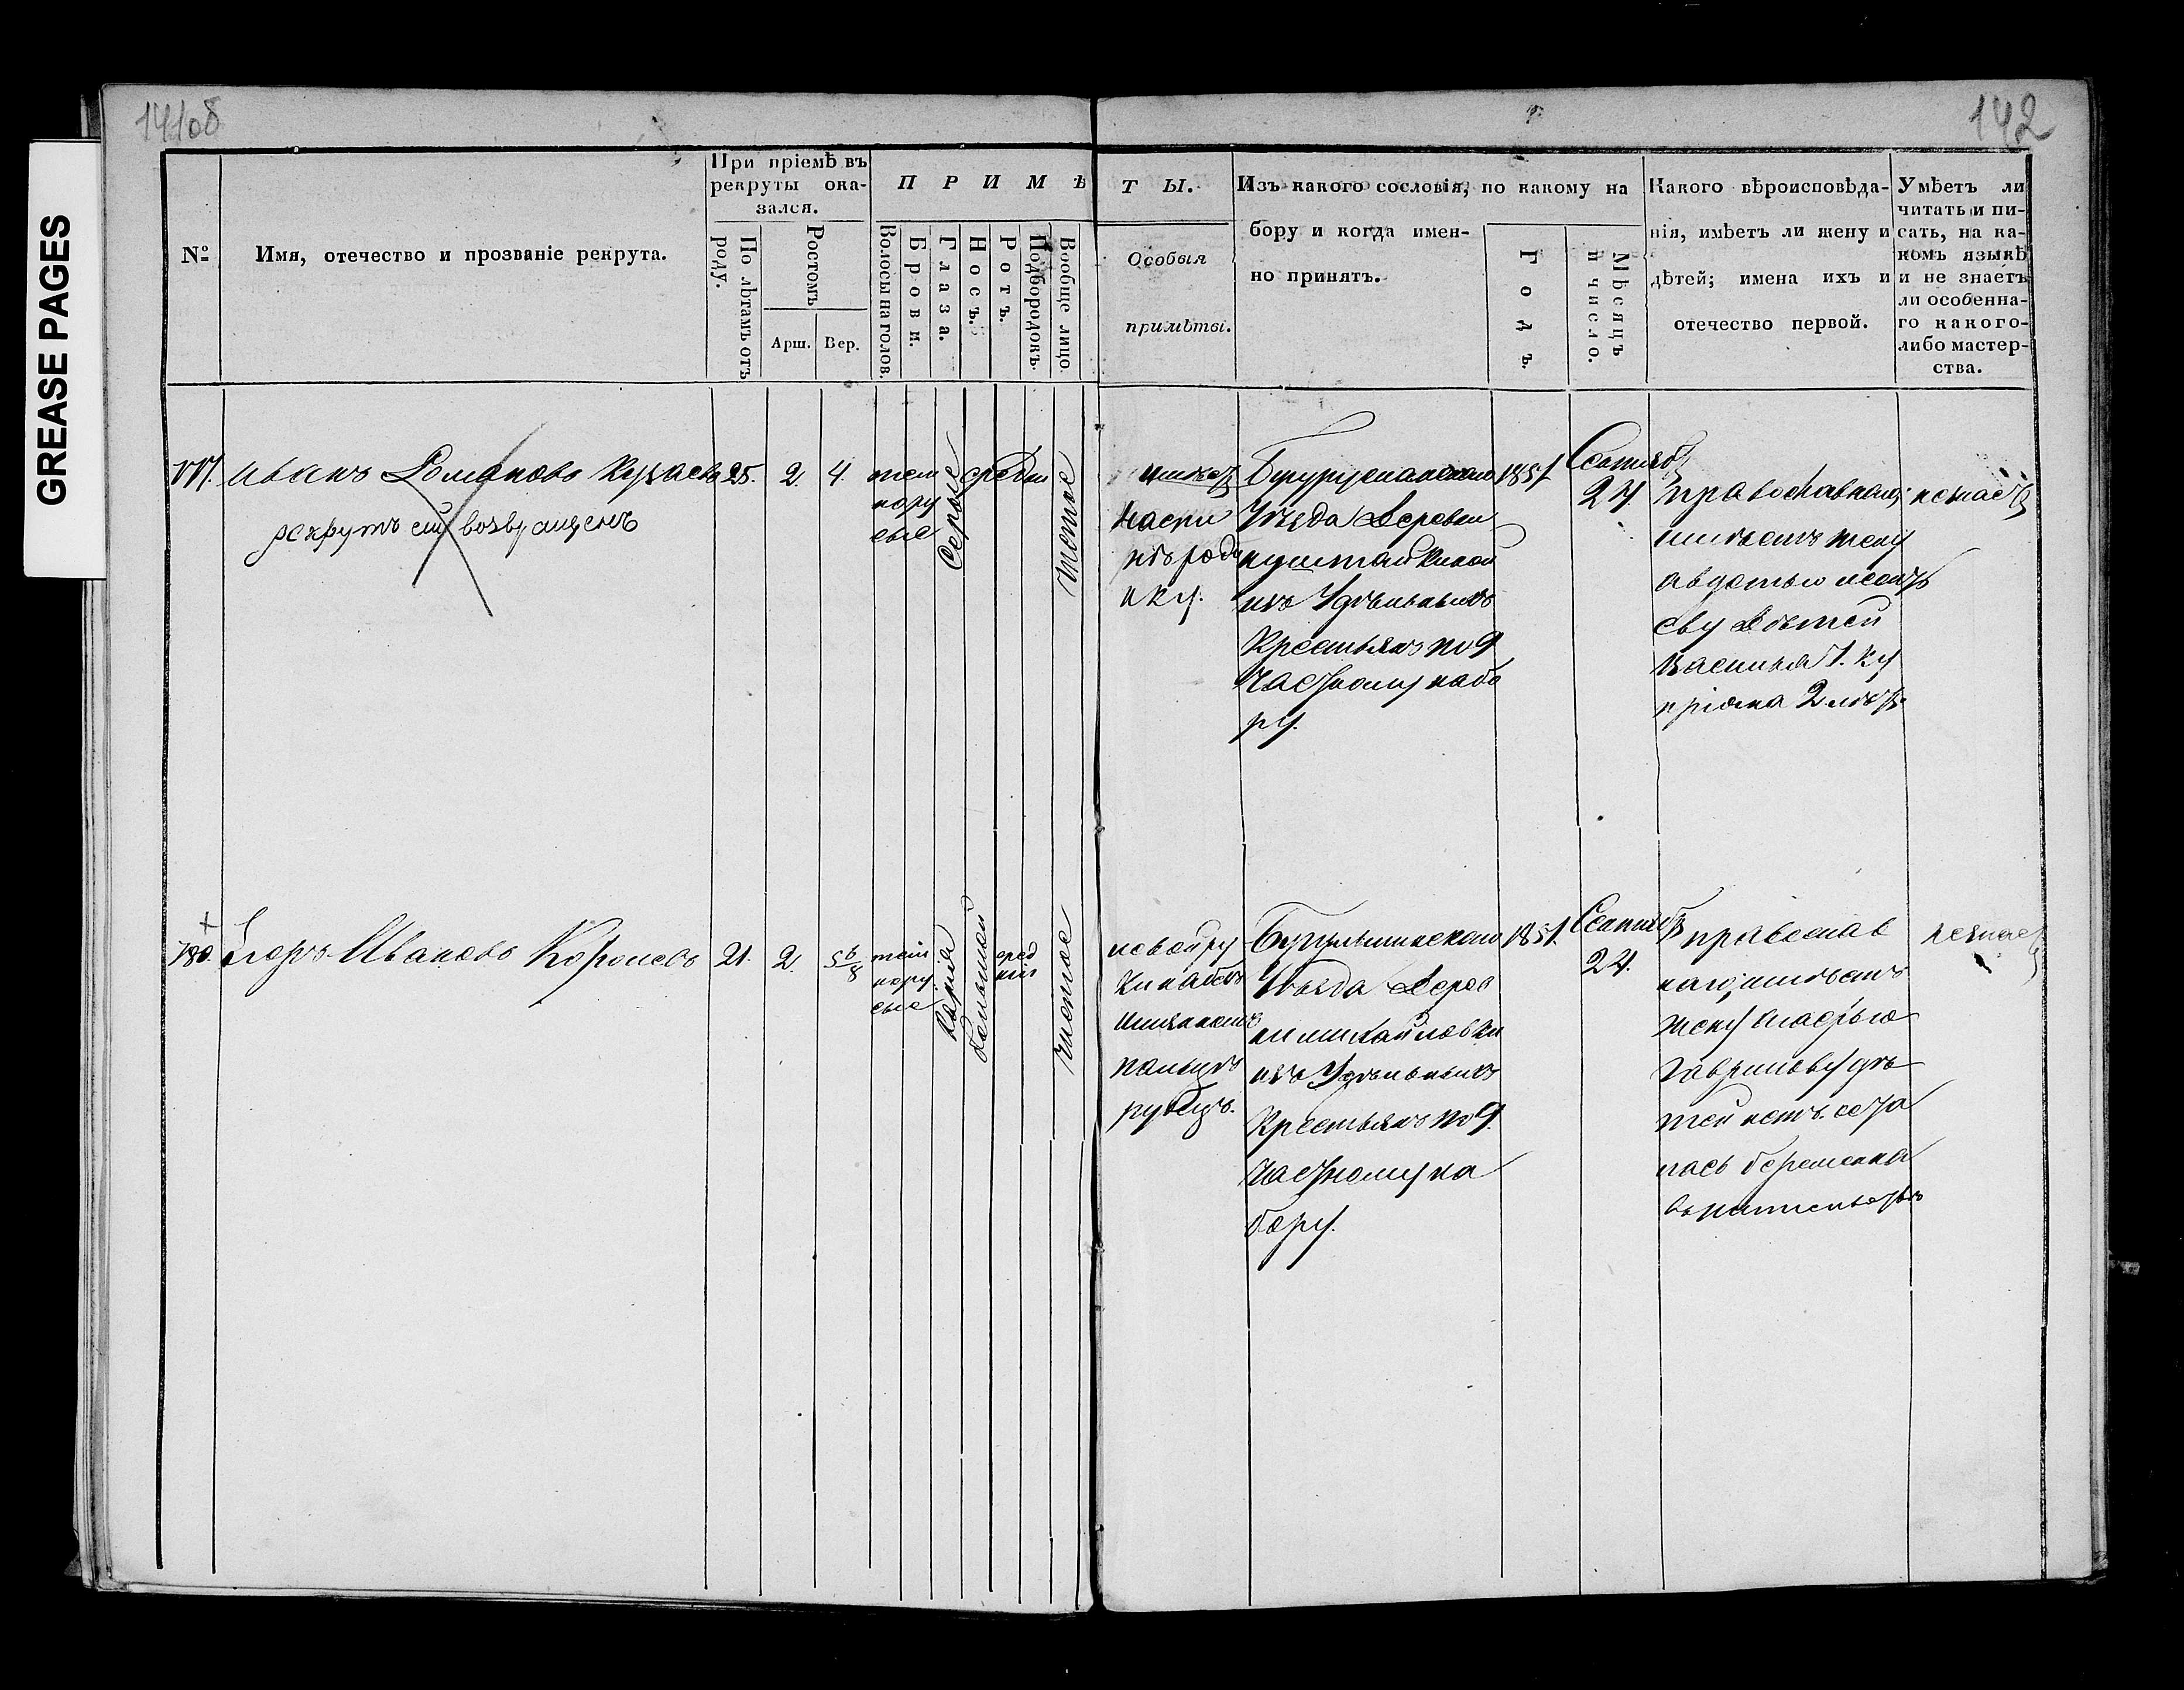 GREASE PAGES
141об
142
№
Имя, отечество и прозваніе рекрута.
При пріемѣ въ
рекруты ока-
зался.
По лѣтамъ отъ
роду.
Ростомъ
Арш.
Вер.
ПРИМѢ
Волосы на голов.
Брови.
Глаза.
Носъ.
Ротъ.
Подбородокъ.
Вообще лицо.
ТЫ.
Особыя
примѣты.
Изъ какого сословія, по какому на
бору и когда имен-
но принятъ.
Годъ.
Мѣсяцъ
и число.
Какого вѣроисповѣда-
нія, имѣетъ ли жену и
дѣтей; имена ихъ и
отечество первой.
Умѣетъ ли
читать и пи-
сать, на ка-
комъ языкѣ
и не знаетъ
ли особенна-
го какого-
либо мастер-
ства.
Иванъ Романовъ
рекрутъ сей возвращенъ
25.
2.
4.
тем
нору
сые
Серые
средни
чистое
имеет
части
родин
ку.
Бугурусланскаго
Уѣзда Деревни
изъ Удѣльныхъ
Крестьянъ по 9
Частному набо
ру.
1851
Сентяб
24
православнаго;
имѣетъ жену
авдотью
еву Дѣтей
василья 1. ку
пріяна 2 лѣтъ
780
Егоръ Ивановъ Королевъ
21.
2.
5 6/8
тем
нору
сые
Карія
большой
сред
ній
чистое
левой ру
ки на
палцѣ
рубецъ.
Бугульминскаго
Уѣзда Дерев
ни михайловки
изъ Удѣльныхъ
Крестьянъ по 9.
Частному на
бору.
1851.
Сентяб
24.
православ
наго, имѣетъ
жену марью
Гаврилову дѣ
тей нетъ. оста
лась беременна